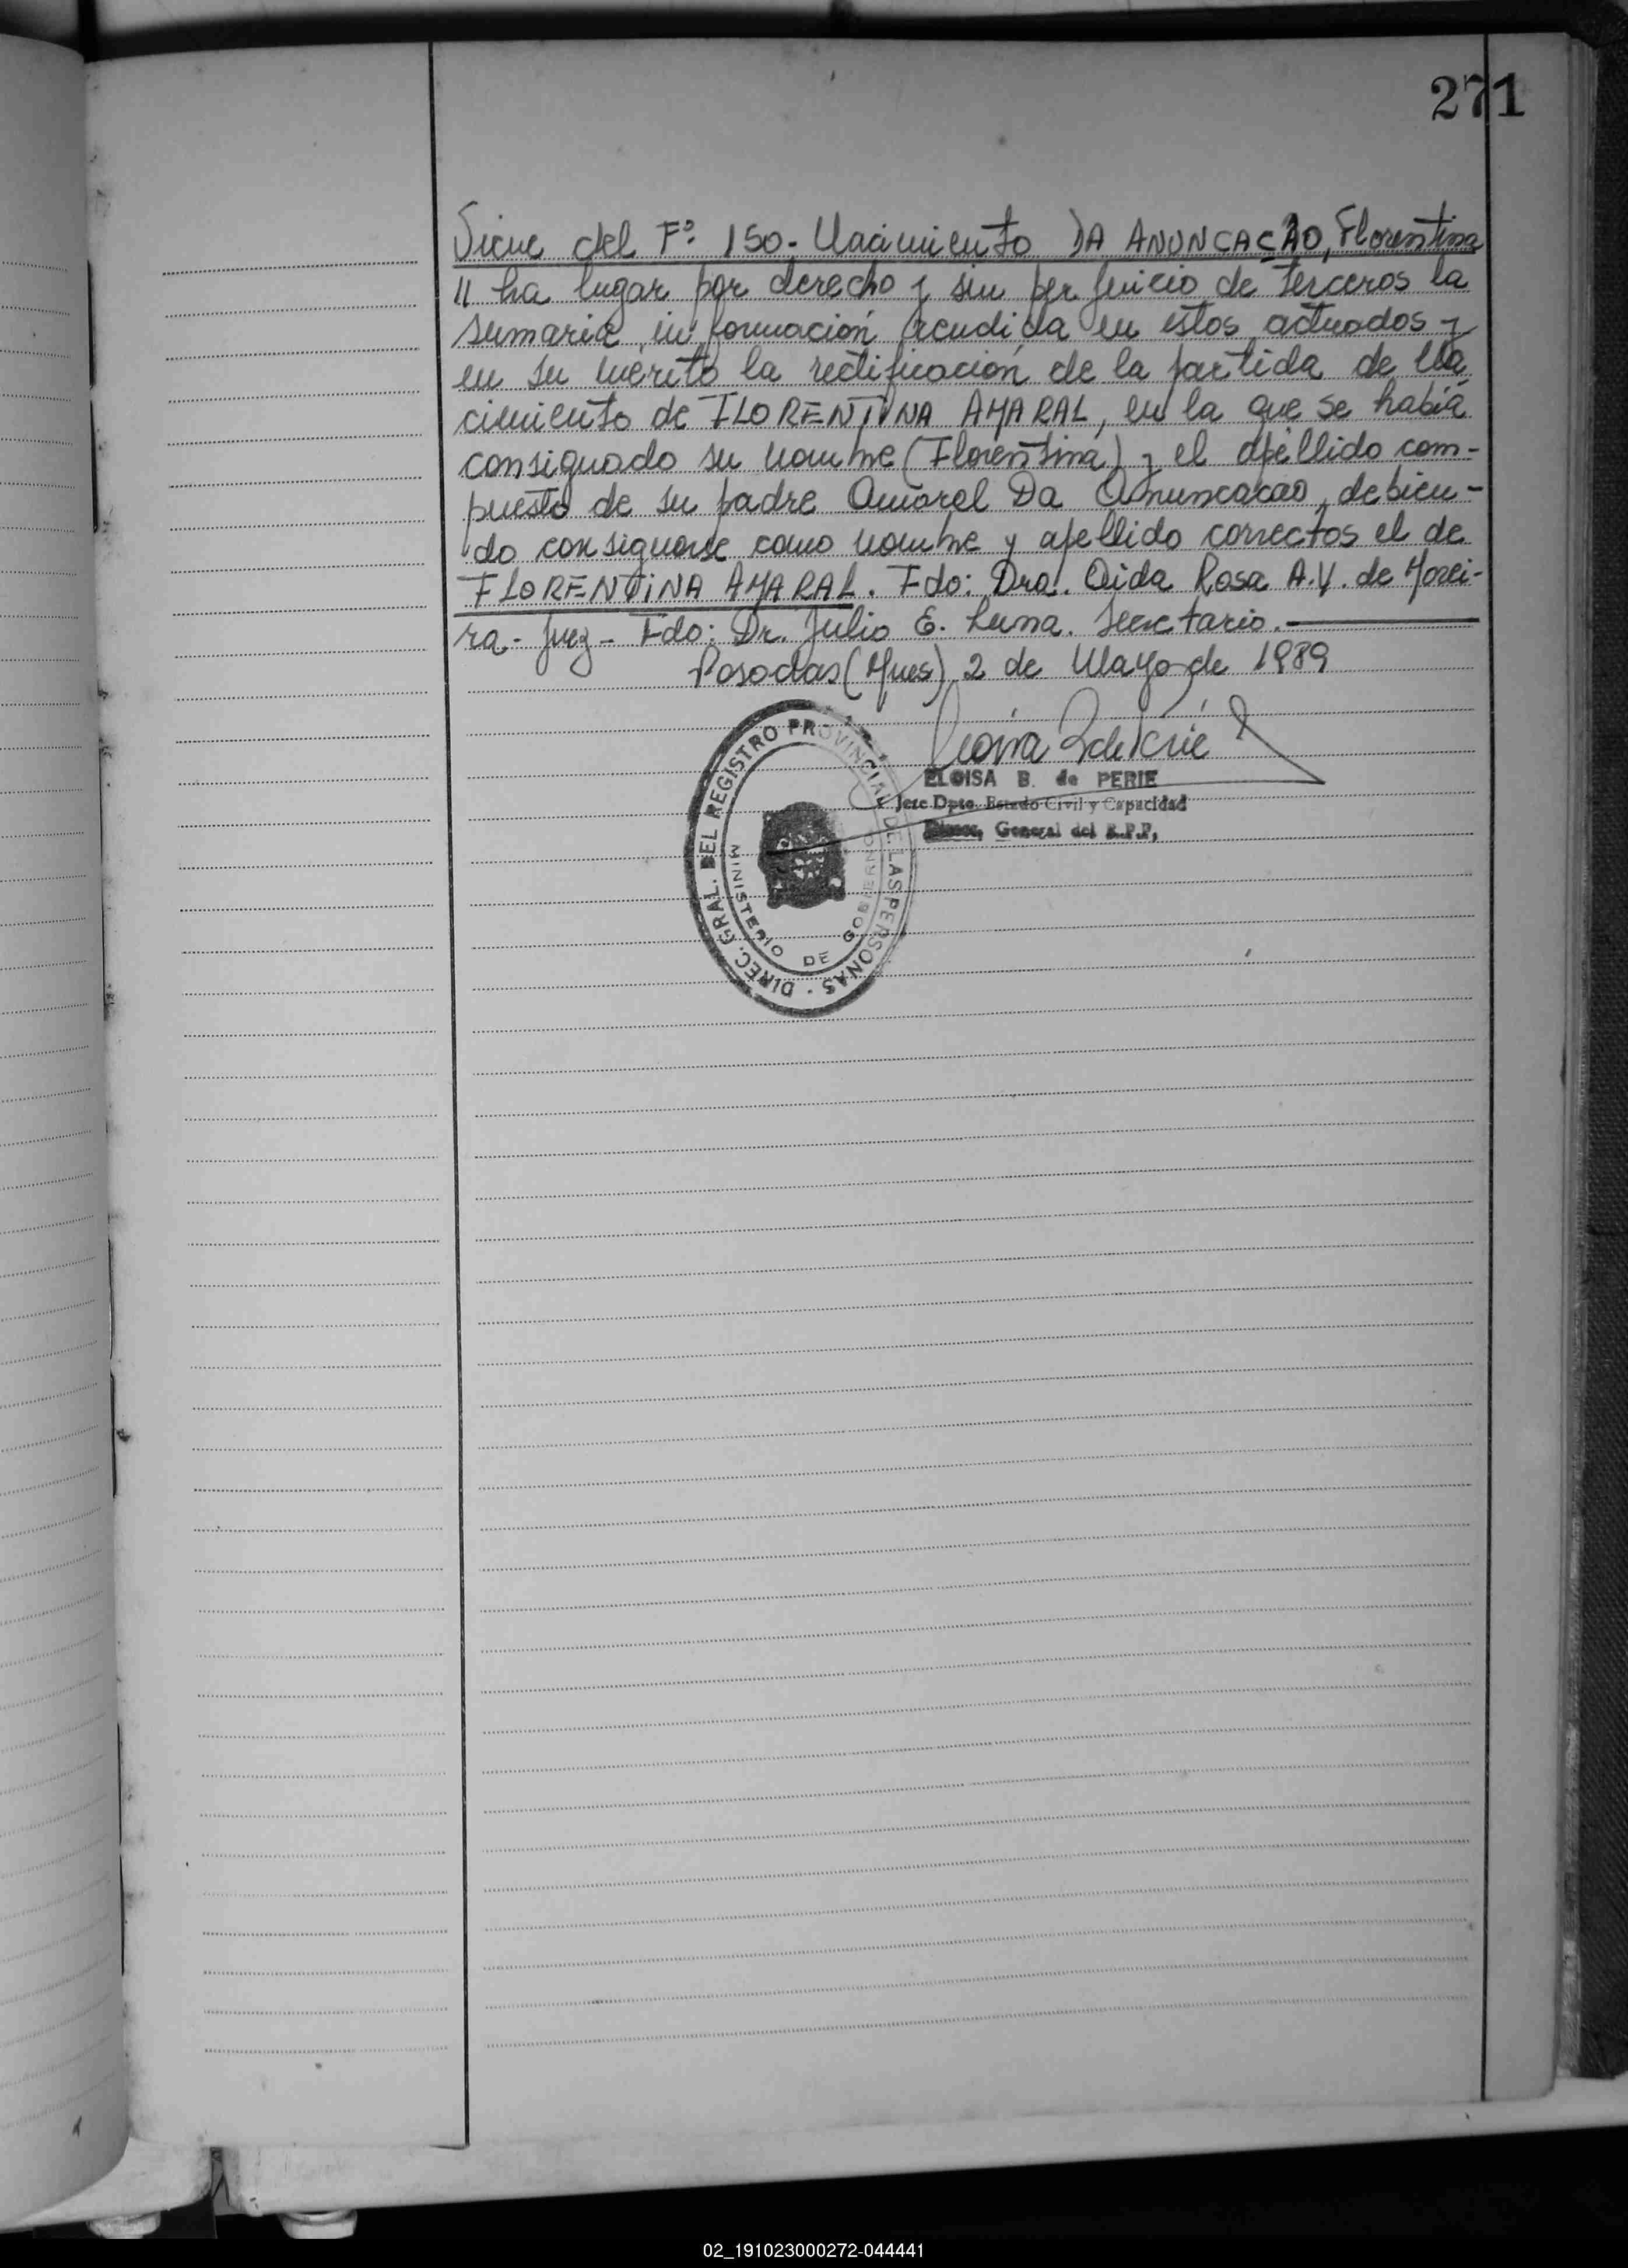 271
Viene del Fº 150- Nacimiento DA ANUNCACAO, Florentina
// ha lugar por derecho y sin perjuicio de terceros la
sumaria información rendida en estos actuados y
en su mérito la rectificación de la partida de Na
cimiento de FLORENTINA AMARAL, en la que se había
consignado su nombre (Florentina) y el apellido com-
puesto de su padre Amaral Da Anuncacao, debien-
do consignarse como nombre y apellido correctos el de
FLORENTINA AMARAL. Fdo: Dra. Aida Rosa A.V. de Morei-
ra- Juez- Fdo: Dr. Julio E. Luna. Secretario.-
Posadas (Mnes) 2 de Mayo de 1989
ELOISA B. de PERIE
Jefe Dpto. Estado Civil y Capacidad
General del R.P.P.
DIREC. GRAL. DEL REGISTRO PROVINCIAL DE LAS PERSONAS
MINISTERIO DE GOBIERNO
02_191023000272-044441